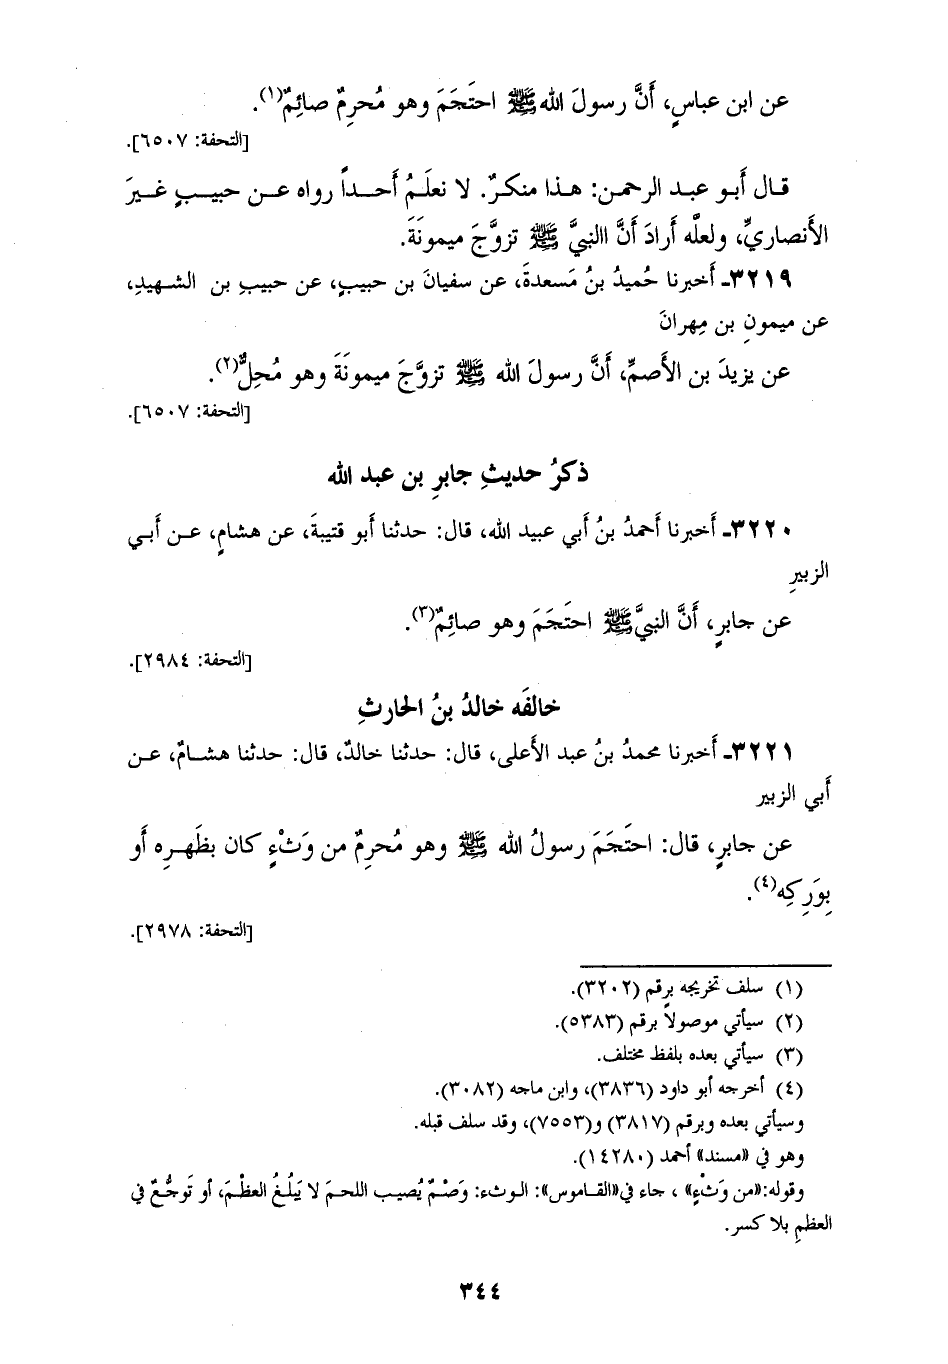 عن ابن عباسٍ، أَنَّ رسولَ الله ﷺ احتَجَمَ وهو مُحرِمٌ صائِمٌ(١).
[التحفة: ٦٥٠٧].
قال أَبو عبد الرحمن: هذا منكرٌ. لا نعلَمُ أَحداً رواه عن حبيبٍ غيرَ
الأَنصاريِّ، ولعلَّه أَرادَ أَنَّ االنبيَّ ﷺ تزوَّجَ ميمونَةَ.
٣٢١٩ـ أَخبرنا حُميدُ بنُ مَسعدةَ، عن سفيانَ بن حبيبٍ، عن حبيبِ بن الشهيدِ،
عن ميمونِ بن مِهرانَ
عن يزيدَ بن الأَصمِّ، أَنَّ رسولَ الله ﷺ تزوَّجَ ميمونَةَ وهو مُحِلٌّ(٢).
[التحفة: ٦٥٠٧].
ذكرُ حديثِ جابرِ بن عبد الله
٣٢٢٠ـ أَخبرنا أَحمدُ بنُ أَبي عبيد الله، قال: حدثنا أَبو قتيبةَ، عن هشامٍ، عن أَبي
الزبيرِ
عن جابرٍ، أَنَّ النبيَّ ﷺ احتَجَمَ وهو صائِمٌ(٣).
[التحفة: ٢٩٨٤].
خالفَه خالدُ بنُ الحارثِ
٣٢٢١ـ أَخبرنا محمدُ بنُ عبد الأَعلى، قال: حدثنا خالدٌ، قال: حدثنا هشامٌ، عن
أَبي الزبير
عن جابرٍ، قال: احتَجَمَ رسولُ الله ﷺ وهو مُحرِمٌ من وَثْءٍ كان بظَهرِه أَو
بِوَرِكِه(٤).
[التحفة: ٢٩٧٨].
(١) سلف تخريجه برقم (٣٢٠٢).
(٢) سيأتي موصولاً برقم (٥٣٨٣).
(٣) سيأتي بعده بلفظ مختلف.
(٤) أخرجه أبو داود (٣٨٣٦)، وابن ماجه (٣٠٨٢).
وسيأتي بعده وبرقم (٣٨١٧) و(٧٥٥٣)، وقد سلف قبله.
وهو في «مسند» أحمد (١٤٢٨٠).
وقوله:«من وَثْءٍ» ، جاء في«القاموس»: الوثء: وَصْمٌ يُصيب اللحمَ لا يَبلُغُ العظْمَ، أو تَوجُّعٌ في
العظمِ بلا كسر.
٣٤٤